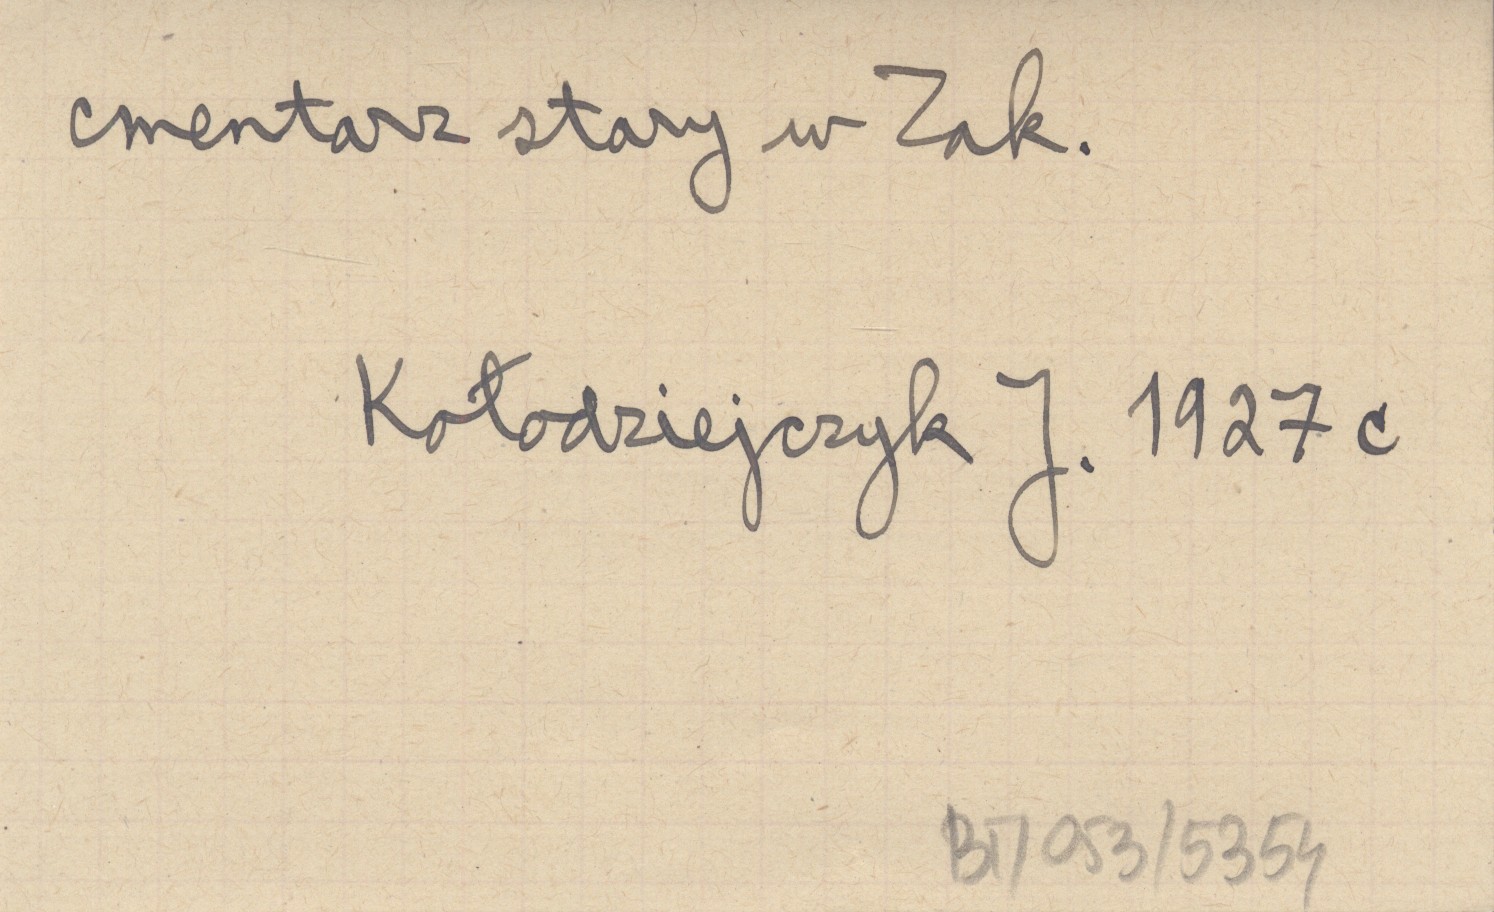 cmentarz stary w Zak.
Kołodziejczyk J. 1927 c
BT/053/5354